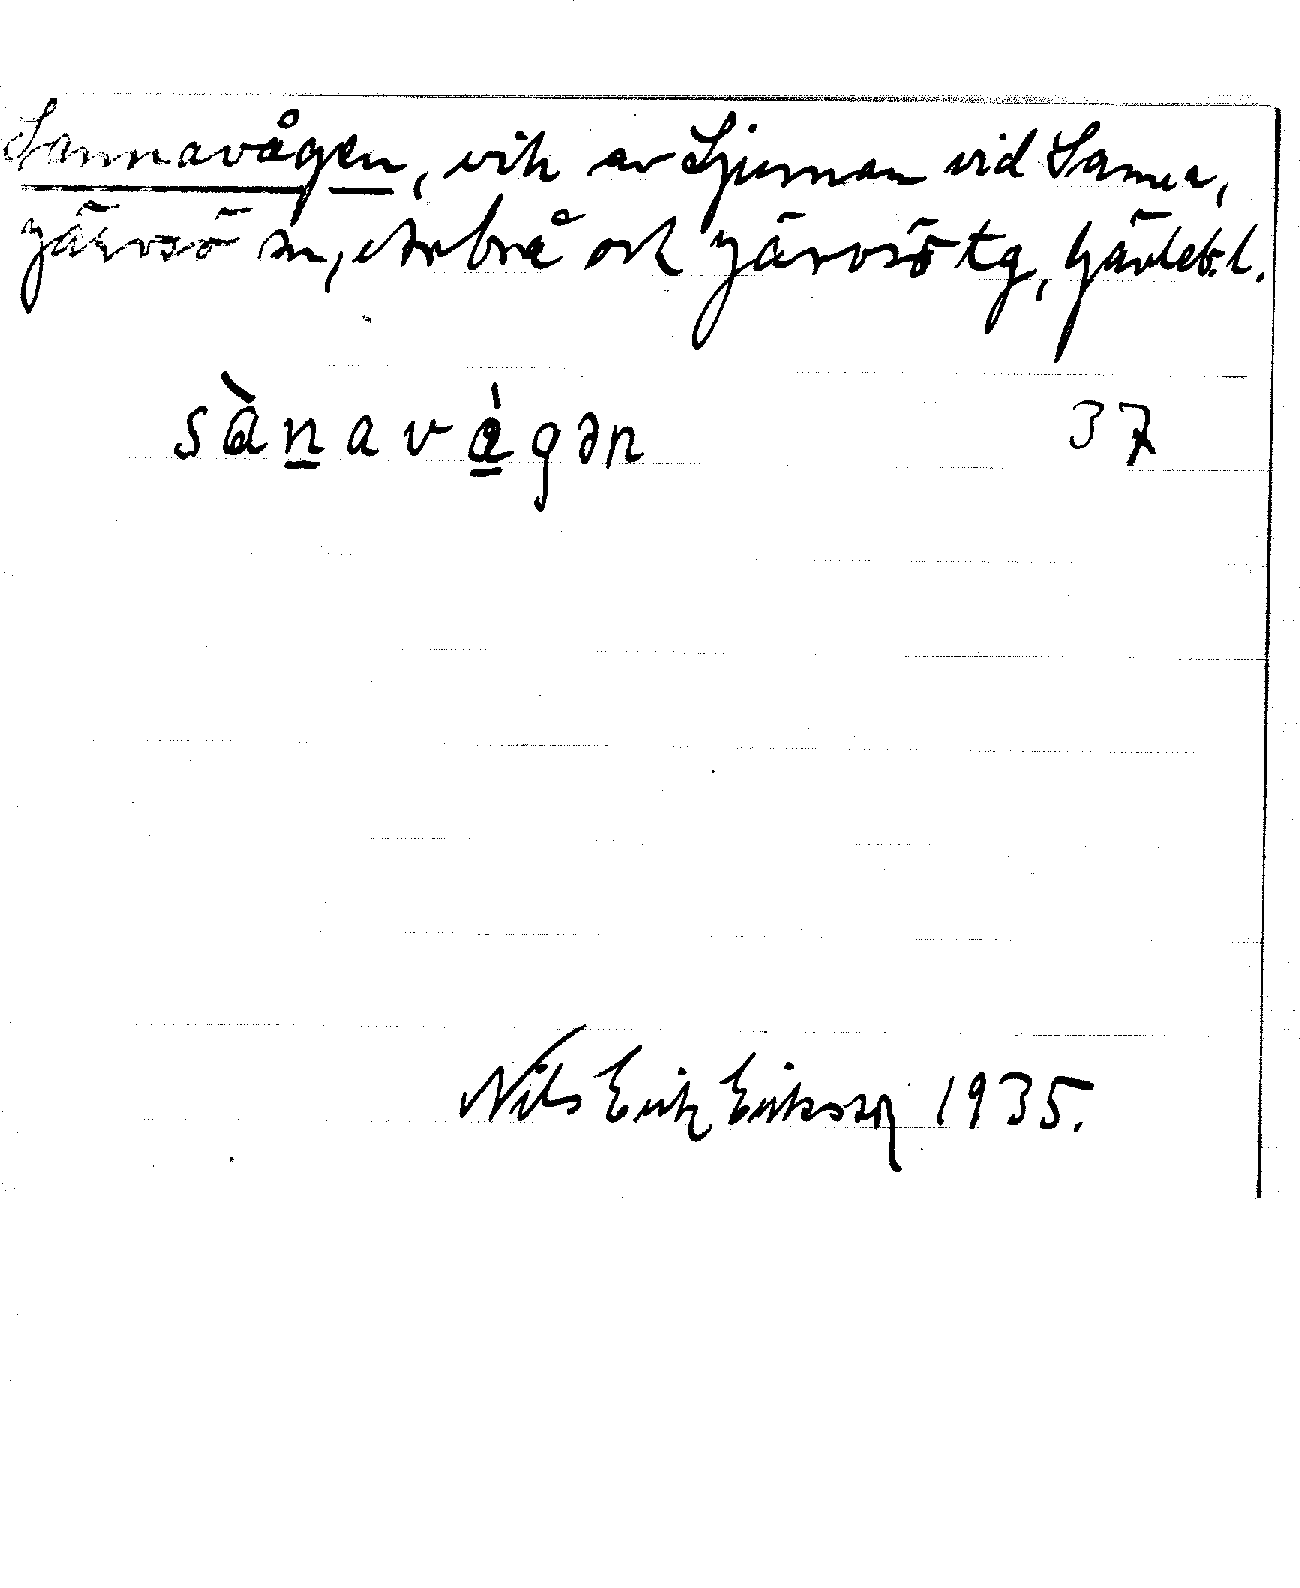 Sannavågen, vik av Ljusnan vid Sanna,
Järvsö sn, Arbrå och Järvsö tg, Gävleb. l.
sànavágən 37
Nils Erik Eriksson 1935.